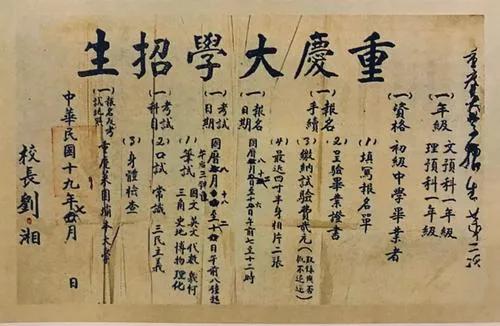 重慶大學招生
重慶大學招生第二次
(一)年級 文預科一年級
理預科一年級
(一)資格 初級中學畢業者
(一)報名手續 (1)填寫報名單
(2)呈驗畢業證書
(3)繳納試驗費貳元(取錄與否概不退还)
(4)最近四寸半身相片二張
(一)報名日期 國曆
日午前七至十二時
(一)考試日期 國曆
日午前八鐘起
午后三鐘
(一)考試科目 (1)筆試 國文 英文 代數 幾何
三角 史地 博物 理化
(2)口試 常識 三民主義
(3)身體檢查
(一)報名及考試地點 重慶菜園壩本大學
中華民國十九年 月 日
校長劉湘